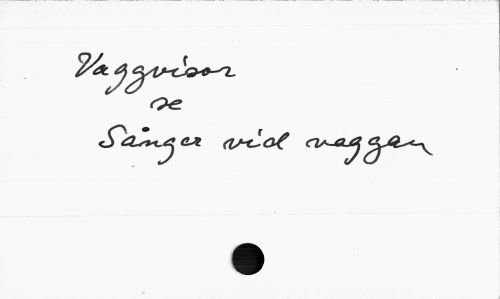 Vaggvisor
se
Sånger vid vaggan